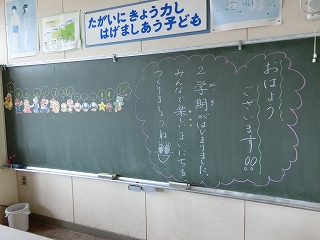 たがいに きょう力し
はげましあう子ども
おはよう
ございます!!
２学期がはじまりました。
みんなで楽しいまいにちを
つくりましょうね